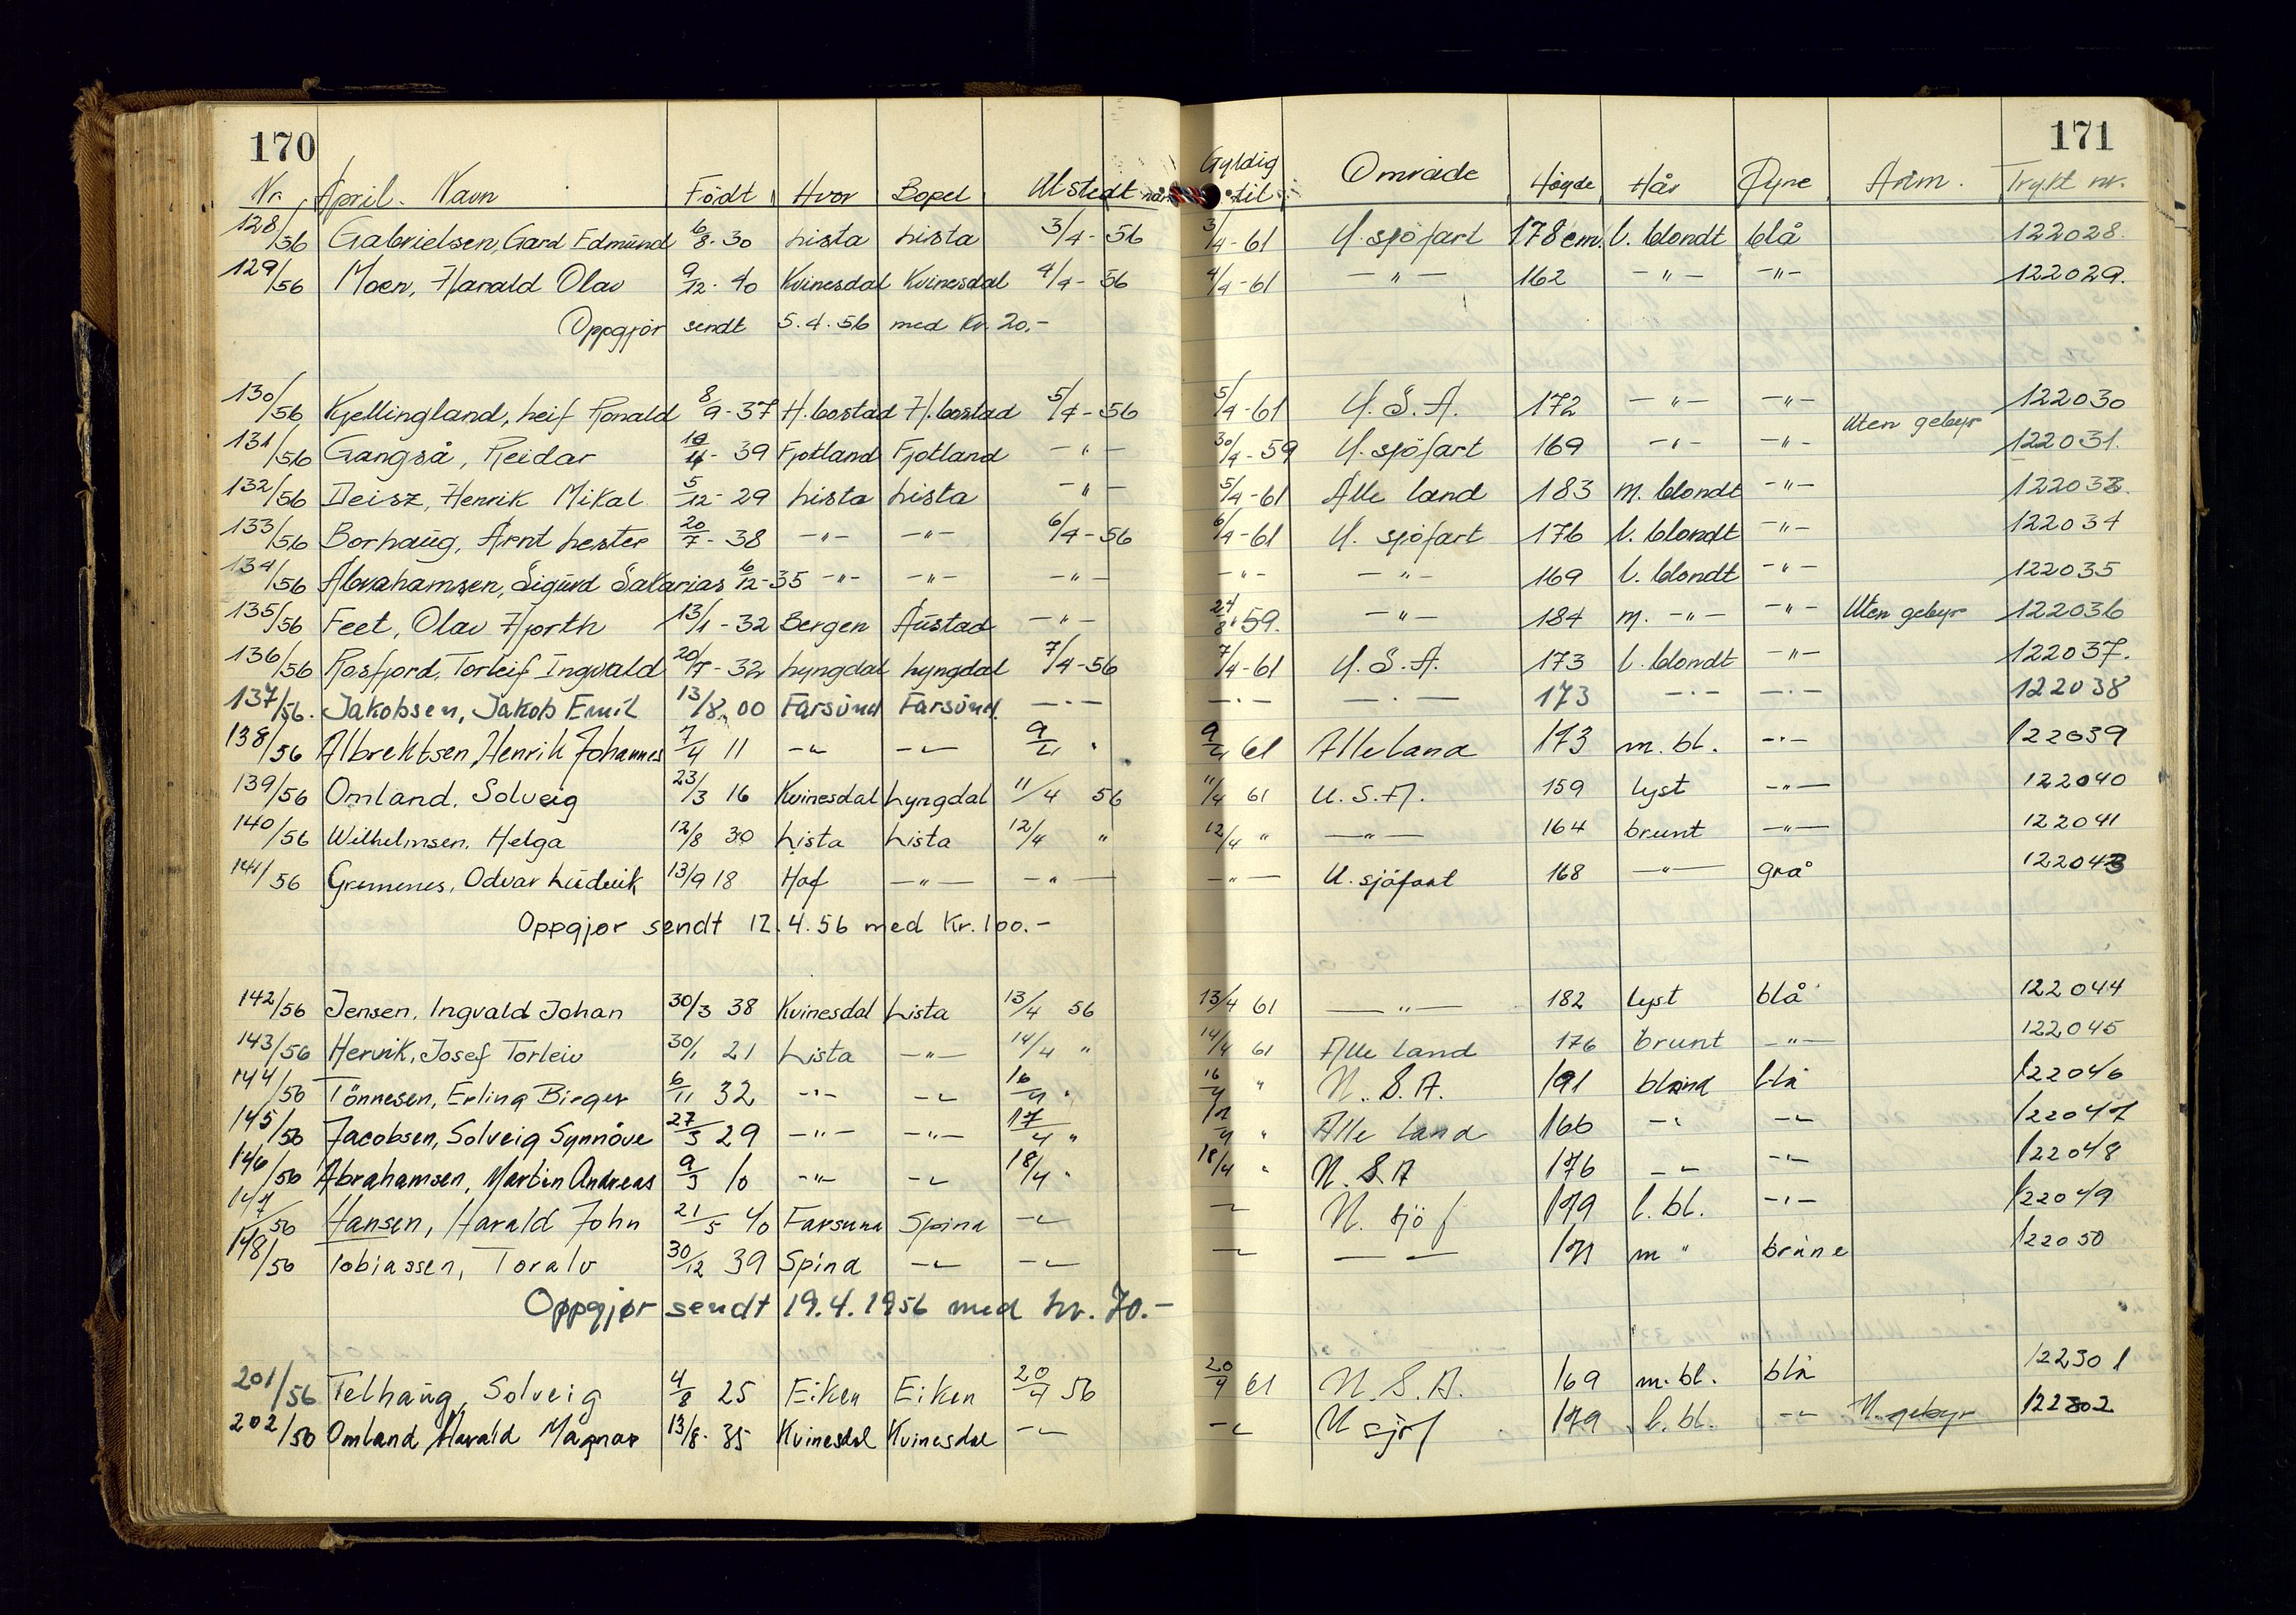 170 171
Nr April. Navn Födt Hvor Bopel Utstedt når Gyldig til Område Høyde Hår Øyne Anm. Trykt nr.
128/56 Gabrielsen, Gard Edmund 6/8-30 Lista Lista 3/4-56 3/4-61 U.sjöfart 178cm. l. blondt blå 122028.
129/56 Moen, Harald Olav 9/12-40 Kvinesdal Kvinesdal 4/4-56 4/4-61 -"- 162 -"- -"- 122029.
Oppgjör sendt 5.4.56 med Kr. 20.-
130/56 Kjellingland, Leif Ronald 8/9-37 H.bostad H.bostad 5/4-56 5/4-61 U.S.A. 172 -"- -"- 122030
131/56 Gangså, Reidar 39 Fjotland Fjotland -"- 30/4-59 U.sjöfart 169 -"- -"- Uten gebyr 122031.
132/56 Deisz, Henrik Mikal 5/12-29 Lista Lista -"- 5/4-61 Alle land 183 m. blondt -"- 122033.
133/56 Borhaug, Arnt Lester 20/7-38 -"- -"- 6/4-56 6/4-61 U. sjöfart 176 l. blondt -"- 122034
134/56 Abrahamsen, Sigurd Sakarias 6/12-35 -"- -"- -"- -"- -"- 169 l. blondt -"- 122035
135/56 Feet, Olav Hjorth 13/1-32 Bergen Austad -"- 24/8-59. -"- 184 m. -"- -"- Uten gebyr 122036
136/56 Rosfjord, Torleif Ingvald 20/7-32 Lyngdal Lyngdal 7/4-56 7/4-61 U.S.A. 173 l. blondt -"- 122037.
137/56. Jakobsen, Jakob Emil 13/8.00 Farsund Farsund. -"- -"- -"- 173 -"- -"- 122038
138/56 Albrektsen, Henrik Johannes 7/4 11 -"- -"- 9/4 " 9/4 61 Alle land 173 m. bl. -"- 122039
139/56 Omland, Solveig 23/3 16 Kvinesdal Lyngdal 11/4 56 11/4 61 U.S.A. 159 lyst -"- 122040
140/56 Wilhelmsen, Helga 12/8 30 Lista Lista 12/4 " 12/4 " -"- 164 brunt -"- 122041
141/56 Gremenes, Odvar Ludvik 13/9 18 Hof -"- -"- -"- U.sjöfart 168 -"- grå 122043
Oppgjør sendt 12.4.56 med Kr. 100.-
142/56 Jensen, Ingvald Johan 30/3 38 Kvinesdal Lista 13/4 56 13/4 61 -"- 182 lyst blå 122044
143/56 Hervik, Josef Torleiv 30/1 21 Lista -"- 14/4 " 14/4 61 Alle land 176 brunt -"- 122045
144/56 Tönnesen, Erling Birger 6/11 32 -"- -"- 16/4 " 16/4 " U.S.A. 191 blond blå 122046
145/56 Jacobsen, Solveig Synnöve 27/3 29 -"- -"- 17/4 " 17/4 " Alle land 166 -"- -"- 122047
146/56 Abrahamsen, Martin Andreas 9/3 10 -"- -"- 18/4 " 18/4 " U.S.A 176 -"- -"- 122048
147/56 Hansen, Harald John 21/5 40 Farsund Spind -"- -"- U. sjöf 179 l. bl. -"- 122049
148/56 Tobiassen, Toralv 30/12 39 Spind -"- -"- -"- -"- 171 m " brune 122050
Oppgjør sendt 19.4.1956 med kr. 70.-
201/56 Telhaug, Solveig 4/8 25 Eiken Eiken 20/4 56 20/4 61 U.S.A. 169 m. bl. blå 122301
202/56 Omland Harald Magnar 13/8.35 Kvinesdal Kvinesdal -"- -"- U sjöf 179 l. bl. -"- U. gebyr 122302